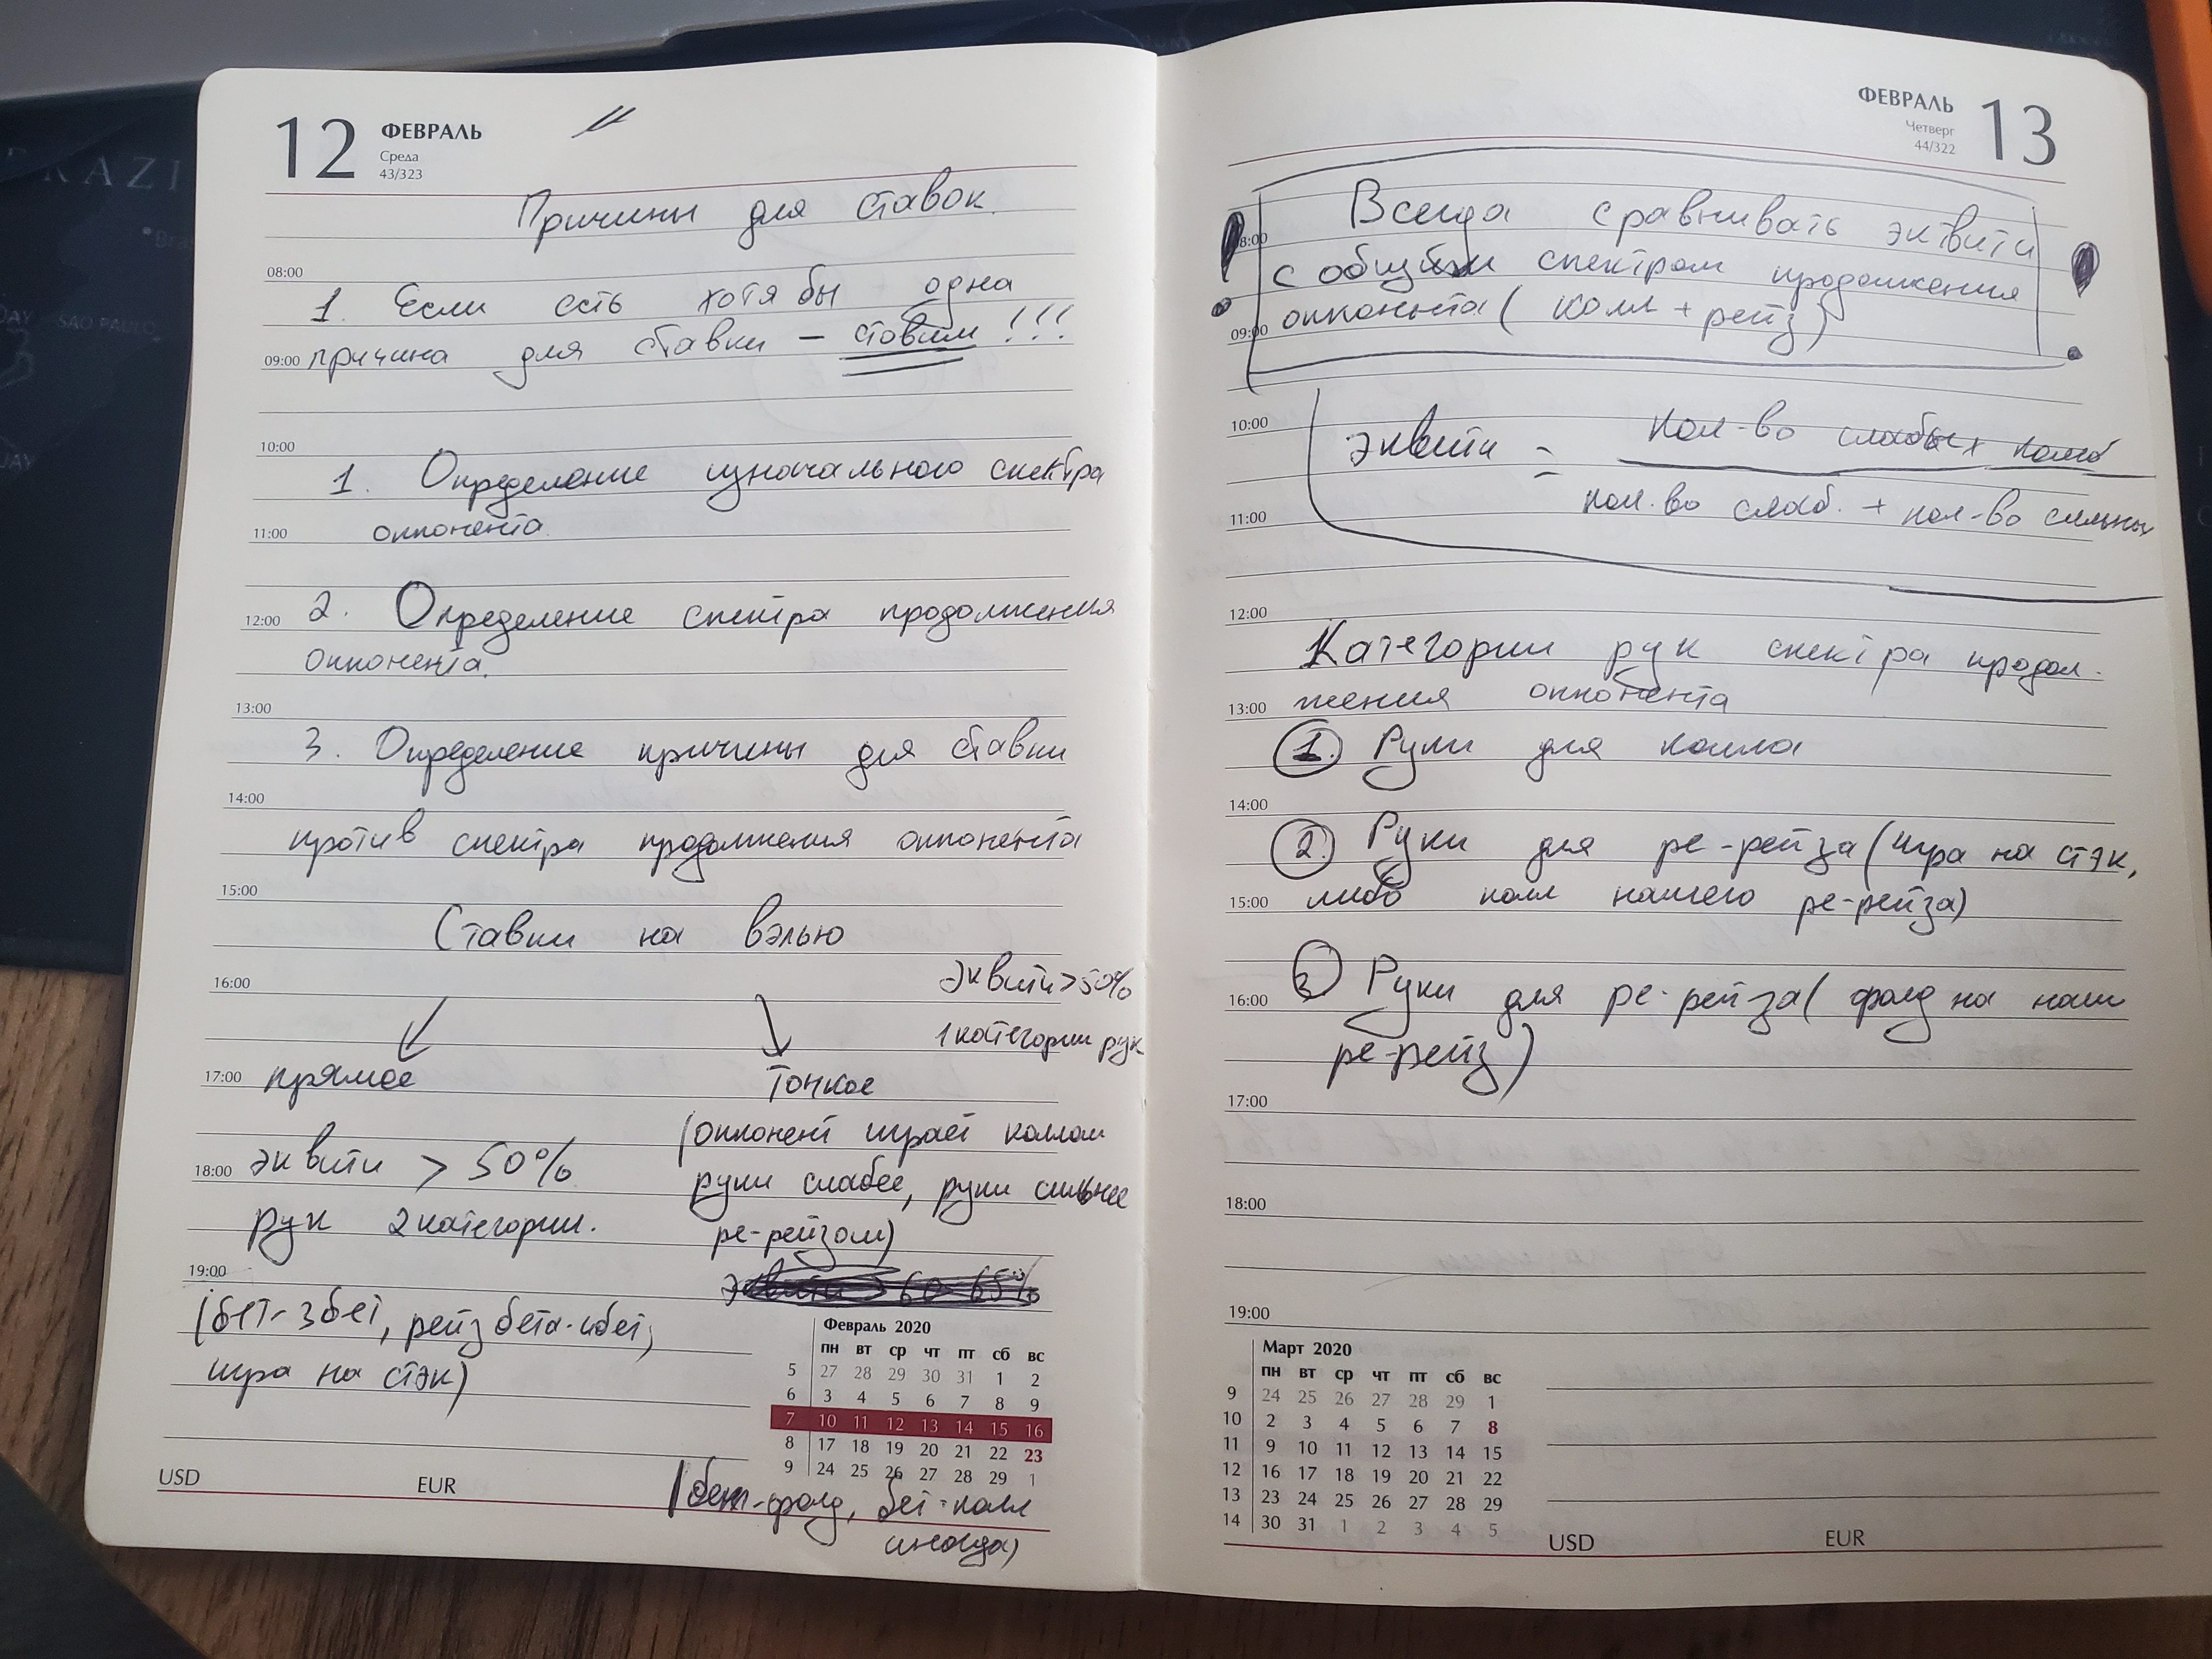 12 ФЕВРАЛЬ
Среда
43/323
Причины для ставок.
08:00
1. Если есть хотя бы одна
09:00 причина для ставки – ставим !!!
10:00
1. Определение изначального спектра
11:00 оппонента.
12:00 2. Определение спектра продолжения
оппонента.
13:00
3. Определение причины для ставки
14:00
против спектра продолжения оппонента
15:00
Ставки на вэлью
эквити > 50%
16:00
1 категории рук
17:00 прямое тонкое
(оппонент играет коллом
18:00 эквити > 50%
руки слабее, руки сильнее
рук 2 категории.
ре-рейзом)
19:00
эквити 60-65%
(бет-3бет, рейз бета-
игра на стэк)
Февраль 2020
пн вт ср чт пт сб вс
5 27 28 29 30 31 1 2
6 3 4 5 6 7 8 9
7 10 11 12 13 14 15 16
8 17 18 19 20 21 22 23
9 24 25 26 27 28 29 1
USD EUR
(бет-фолд, бет-колл
иногда)
ФЕВРАЛЬ 13
Четверг
44/322
Всегда сравнивать эквити
08:00
с общим спектром продолжения
09:00 оппонента ( колл + рейз )
10:00
эквити = кол-во слабых комб
кол.во слаб. + кол-во сильных
11:00
12:00
Категории рук спектра продол-
13:00 жения оппонента
1. Руки для колла
14:00
2. Руки для ре-рейза (игра на стэк,
15:00 либо колл нашего ре-рейза)
3. Руки для ре-рейза ( фолд на наш
16:00
ре-рейз )
17:00
18:00
19:00
Март 2020
пн вт ср чт пт сб вс
9 24 25 26 27 28 29 1
10 2 3 4 5 6 7 8
11 9 10 11 12 13 14 15
12 16 17 18 19 20 21 22
13 23 24 25 26 27 28 29
14 30 31 1 2 3 4 5
USD EUR
SAO PAULO